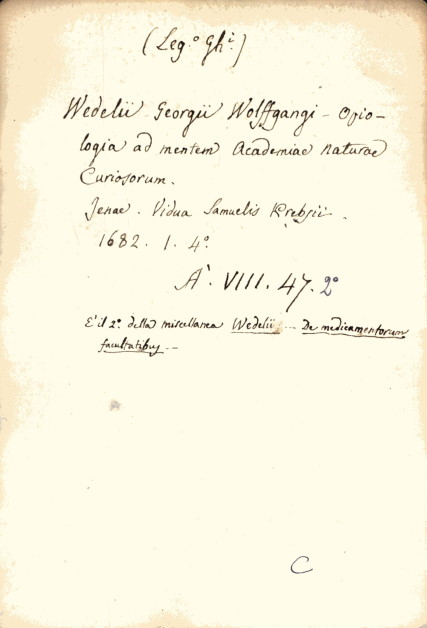 (Leg.º Ghi.)
Wedelii Georgii Wolffgangi - Opio-
logia ad mentem Academiae naturae
Curiosorum.
Jenae. Vidua Samuelis Krebsii.
1682. 1. 4.º
A. VIII. 47. 2º
E' il 2.º della miscellanea Wedelii ... De medicamentorum
facultatibus --
C